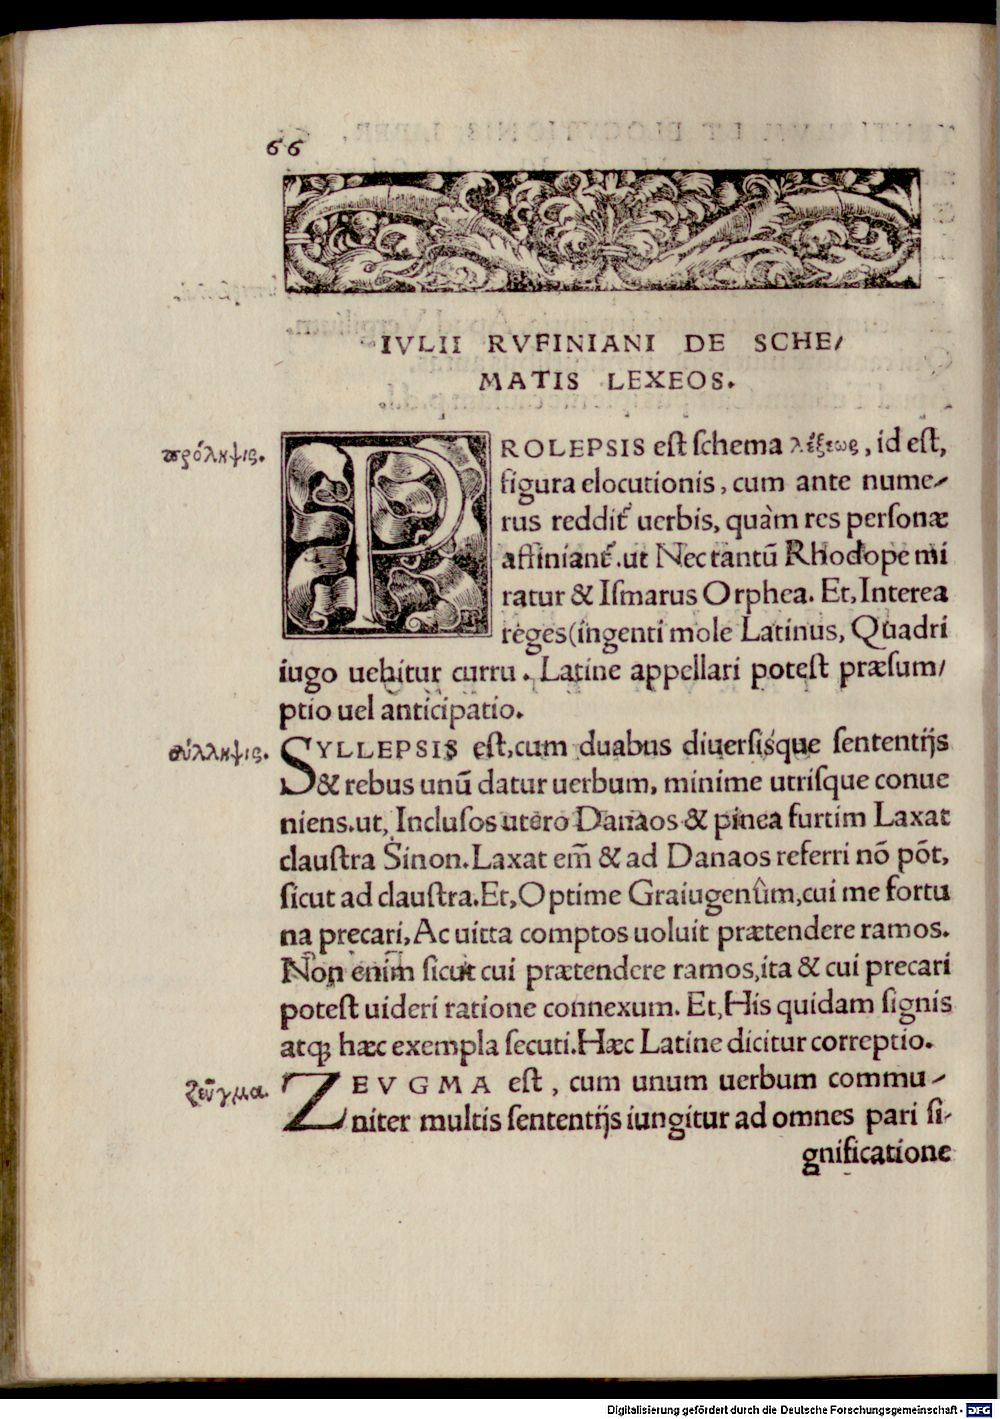 66
IVLII RVFINIANI DE SCHE/
MATIS LEXEOS.
πρόληψις.
PROLEPSIS eſt ſchema λέξεως, id eſt,
figura elocutionis, cum ante nume-
rus reddit᷒ uerbis, quàm res perſonæ
affiniant᷒. ut Nec tantū Rhodope mi
ratur & Iſmarus Orphea. Et, Interea
reges (ingenti mole Latinus, Quadri
iugo uehitur curru. Latine appellari poteſt præſum/
ptio uel anticipatio.
σύλληψις.
SYLLEPSIS eſt, cum duabus diuerſisq́ue ſententĳs
& rebus unū datur uerbum, minime utriſque conue
niens. ut, Incluſos utero Danaos & pinea furtim Laxat
clauſtra Sinon. Laxat em̄ & ad Danaos referri nō pōt,
ſicut ad clauſtra. Et, Optime Graiugenûm, cui me fortu
na precari, Ac uitta comptos uoluit prætendere ramos.
Non enim ſicut cui prætendere ramos, ita & cui precari
poteſt uideri ratione connexum. Et, His quidam ſignis
atqꝫ hæc exempla ſecuti. Hæc Latine dicitur correptio.
ζεῦγμα.
ZEVGMA eſt, cum unum uerbum commu-
niter multis ſententĳs iungitur ad omnes pari ſi-
gnificatione
Digitalisierung gefördert durch die Deutsche Forschungsgemeinschaft - DFG